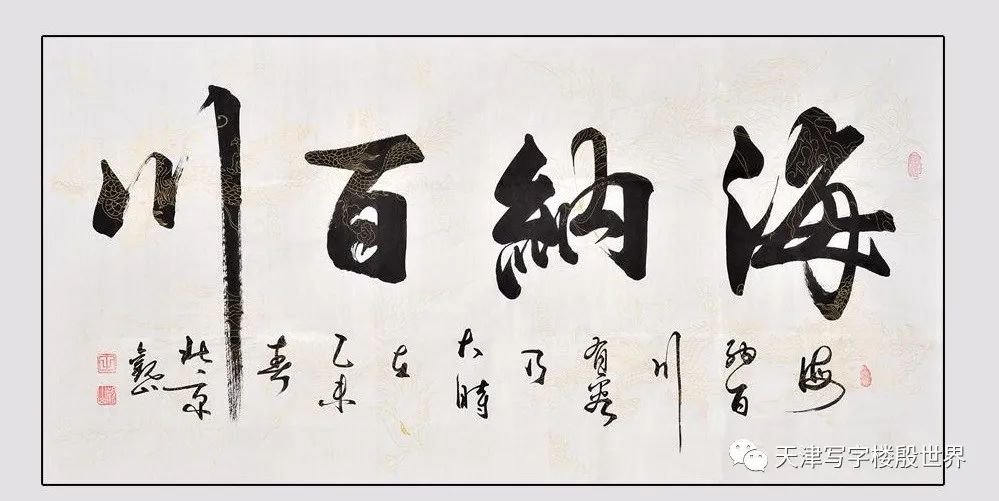 海納百川
海納百川有容乃大時在乙未春北京
天津写字楼殷世界